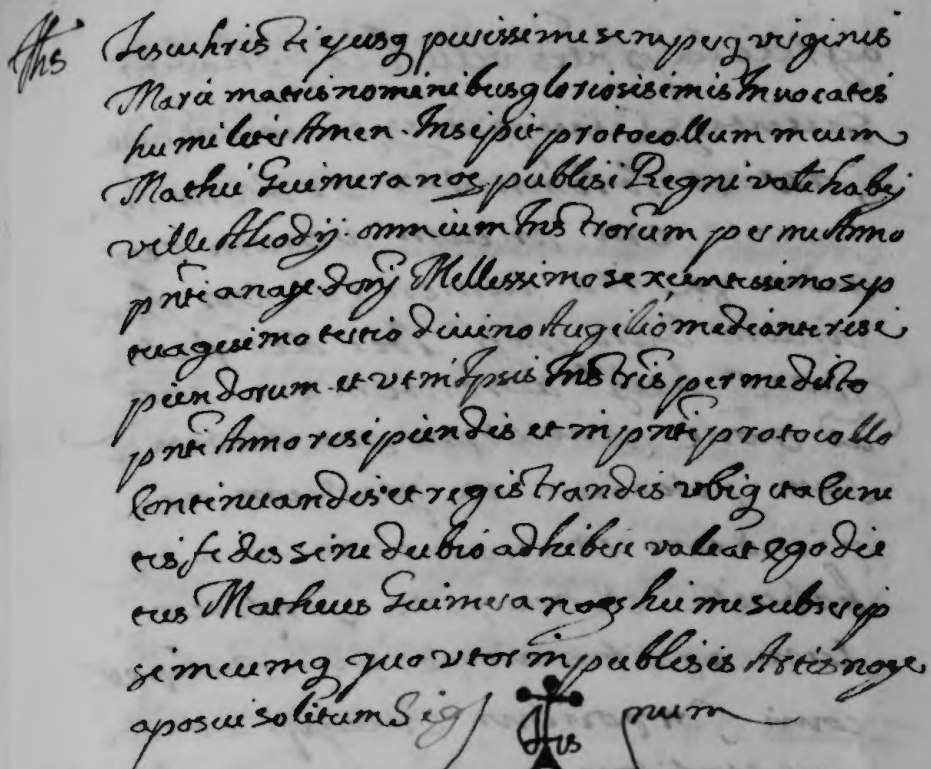 Jhs Iesuchristi ejusq purissime semperq virginis
Marie matris nominibus gloriosisimis Invocatis
humiliter Amen. Insipit protocollum meum
Mathei Guimera nots publisi Regni vale habij
ville Alcodij. omnium Instrorum per me Anno
pnti a nate domj Mellessimo sexcentessimo sep
tuagesimo tertio divino Augilio mediante resi
piendorum et vt in Ipsis Instris per me dicto
pnti Anno resipiendis et in pnti protocollo
Continuandis et registrandis vbiq ita Cunc
tis fides sine dubio adhiberi valeat ego dic
tus Matheus Guimera nots hic me subscrip
si meumq quo vtor in publisis Artis note
aposui solitum Sig Jhs num